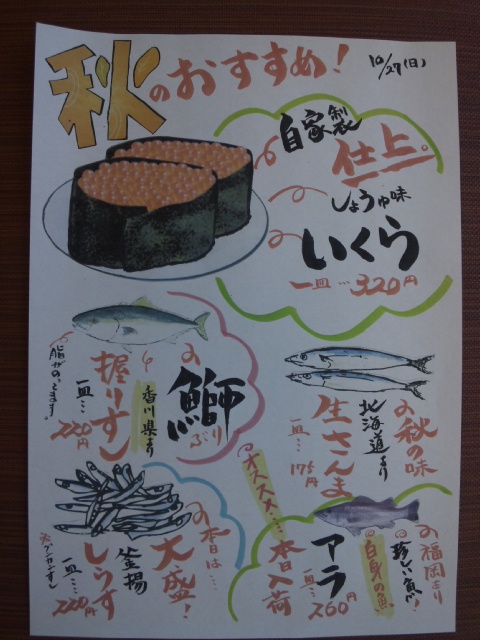 秋のおすすめ!
10/27(日)
自家製
仕上。
しょうゆ味
いくら
一皿…320円
鰤
ぶり
香川県より
握りすし
一皿…220円
脂がのってます。
秋の味
北海道より
生さんま
一皿…175円
本日は…
大盛!
釜揚
しらす
一皿…220円
※グンカンすし
オススメ…
本日入荷
アラ
一皿…260円
福岡より
珍しい魚!
白身の魚